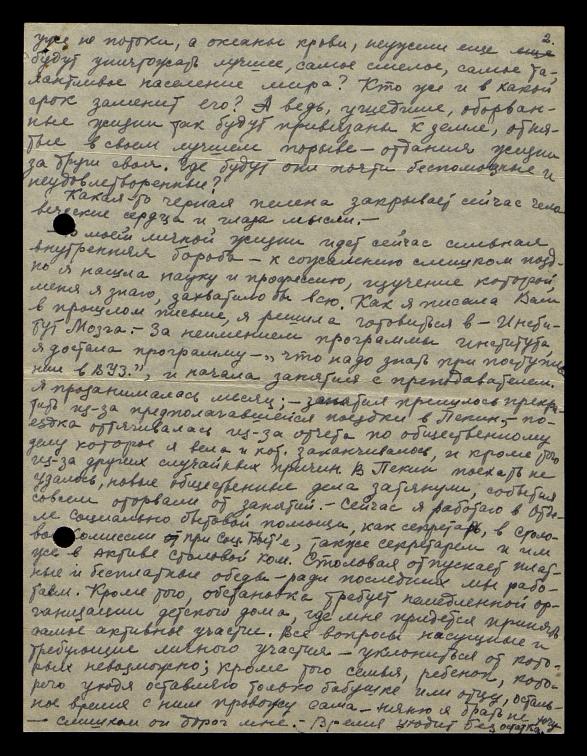 2.
уже не потоки, а океаны крови, неужели еще еще
будут уничтожать лучшее, самое смелое, самое та-
лантливое население мира? Кто же и в какой
срок заменит его? А ведь, ушедшие, оборван-
ные жизни так будут привязаны к земле, отня-
тые в своем лучшем порыве – отдания жизни
за други своя. Где будут они почти беспомощные и
неудовлетворенные?
Какая-то черная пелена закрывает сейчас чело
веческие сердца и глаза мысли. –
моей личной жизни идет сейчас сильная
внутренняя борьба – к сожалению слишком позд-
но я нашла науку и профессию, изучение которой,
меня я знаю, захватило бы всю. Как я писала Вам
в прошлом письме, я решила готовиться в – Инсти-
тут Мозга. – За неимением программы института
я достала программу – „что надо знать при поступле
нии в ВУЗ.", и начала занятия с преподавателем.
Я прозанималась месяц; – занятия пришлось прекра-
тить из-за предполагавшейся поездки в Пекин, – по-
ездка оттягивалась из-за отчета по общественному
делу которое я вела и кот. заканчивалось, и кроме того
из-за других случайных причин. В Пекин поехать не
удалось, новые общественные дела затянули, события
совсем оторвали от занятий. – Сейчас я работаю в Отде-
ле социально бытовой помощи, как секретарь, в столо-
вой комиссии при Соц. Быт'е, также секретарем и им
же в активе столовой ком. Столовая отпускает плат-
ные и бесплатные обеды – ради последних мы рабо-
таем. Кроме того, обстановка требует немедленной ор-
ганизации детского дома, где мне придется принять
самое активное участие. Все вопросы насущные и
требующие личного участия – уклониться от кото-
рых невозможно; кроме того семья, ребенок, кото-
рого уходя оставляю только бабушке или отцу, осталь-
ное время с ним провожу сама – няню я брать не хочу
– слишком он дорог мне. – Время уходит без остатка.